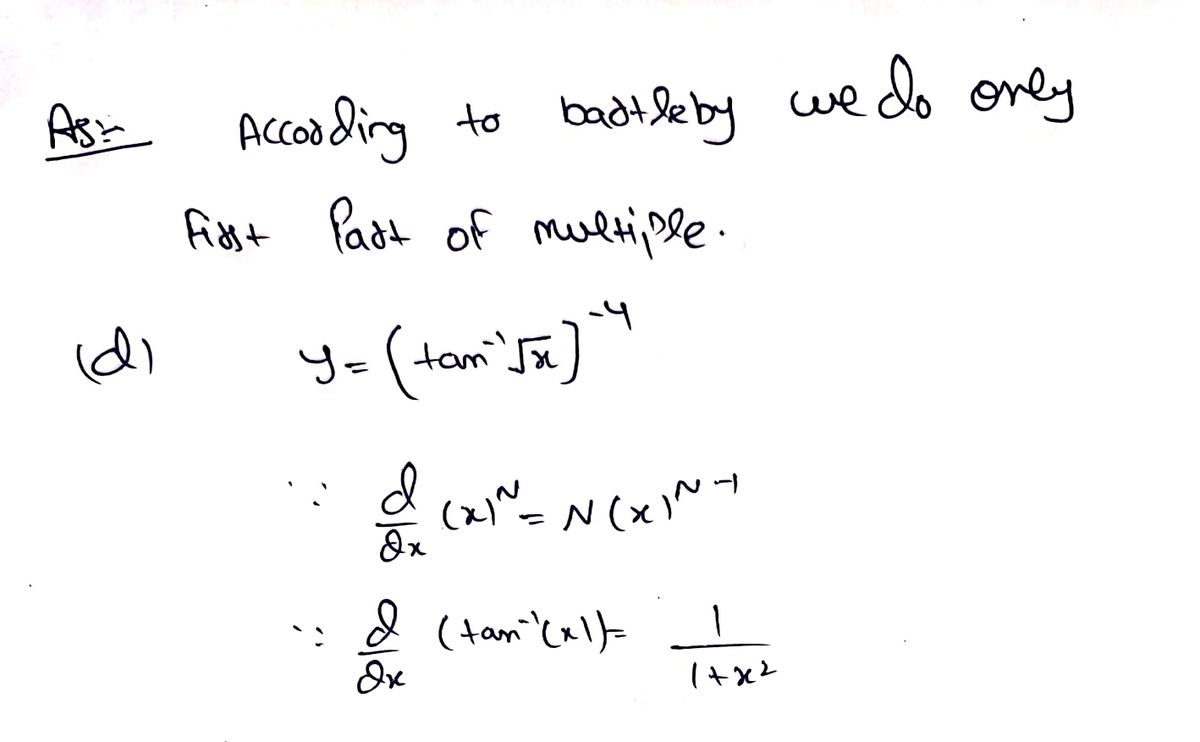 As:-   According to bartleby we do only
first Part of multiple.
(d)   y = (tan⁻¹√x)⁻⁴
∵ d/dx (x)ᴺ = N(x)ᴺ⁻¹
∵ d/dx (tan⁻¹(x)) = 1/(1+x²)